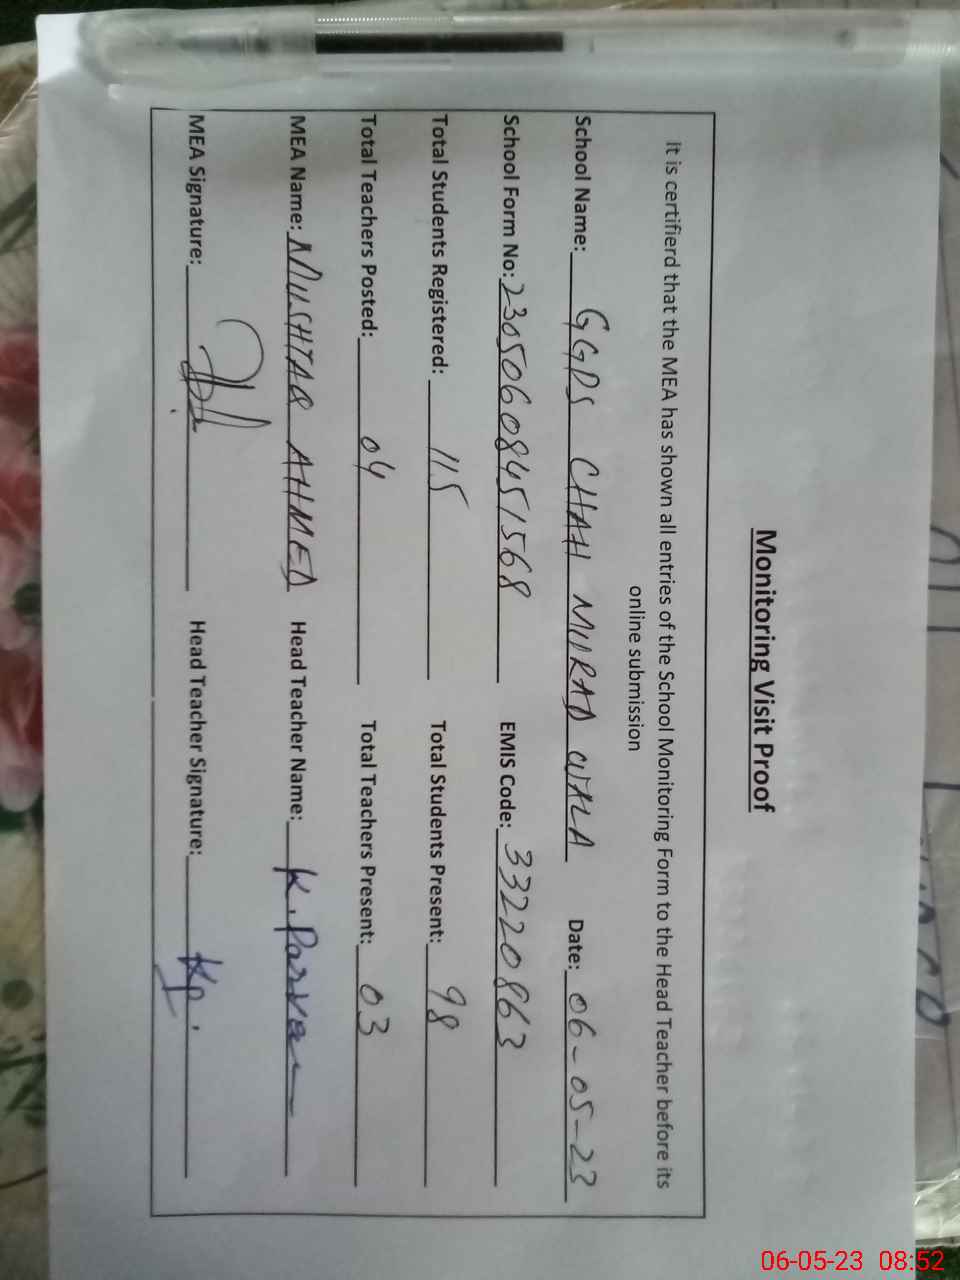 Monitoring Visit Proof
It is certifierd that the MEA has shown all entries of the School Monitoring Form to the Head Teacher before its
online submission
School Name: GGPS CHAH MURAD WALA Date: 06-05-23
School Form No: 23050608451568 EMIS Code: 33220863
Total Students Registered: 115 Total Students Present: 98
Total Teachers Posted: 04 Total Teachers Present: 03
MEA Name: MUSHTAQ AHMED Head Teacher Name: K. Parveen
MEA Signature: Head Teacher Signature: Kp.
06-05-23 08:52